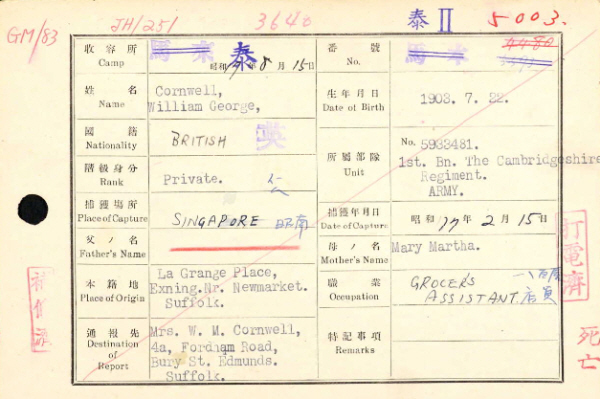 GM/83
JH/251
3640
泰 II
5003.
收容所
Camp
泰
昭和 17年 8月 15日
番號
No.
姓名
Name
Cornwell,
William George,
生年月日
Date of Birth
1903. 7. 22.
國籍
Nationality
BRITISH
英
所屬部隊
Unit
No. 5933481.
1st. Bn. The Cambridgeshire
Regiment.
ARMY.
階級身分
Rank
Private.
捕獲場所
Place of Capture
SINGAPORE 昭南
捕獲年月日
Date of Capture
昭和 17年 2月 15日
父ノ名
Father's Name
母ノ名
Mother's Name
Mary Martha.
本籍地
Place of Origin
La Grange Place,
Exning. Nr. Newmarket.
Suffolk.
職業
Occupation
GROCER'S
ASSISTANT.
店員
通報先
Destination of Report
Mrs. W. M. Cornwell,
4a, Fordham Road,
Bury St. Edmunds.
Suffolk.
特記事項
Remarks
打電濟
死亡